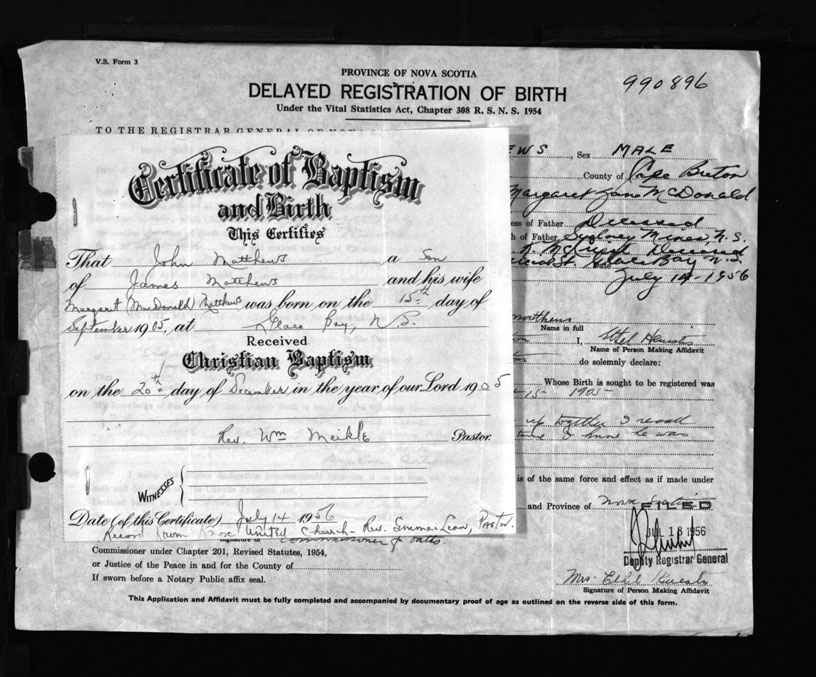 V.S. Form 3
PROVINCE OF NOVA SCOTIA
990896
DELAYED REGISTRATION OF BIRTH
Under the Vital Statistics Act, Chapter 308 R. S. N. S. 1954
TO THE REGISTRAR GENERAL OF
EWS, Sex MALE
County of Cape Breton
Margaret Jane McDonald
ss of Father Deceased
h of Father Sydney Mines, N.S.
Glace Bay N.S.
Date July 14-1956
Certificate of Baptism
and Birth
This Certifies
That John Matthews a Son
of James Matthews and his wife
Margaret (MacDonald) Matthews was born on the 15th day of
September 1905, at Glace Bay, N.S.
Received
Christian Baptism
on the 20th day of December in the year of our Lord 1905
Rev. Wm Meikle Pastor.
WITNESSES
Date (of this Certificate) July 14 1956
Record from United Church - Rev. Pastor.
matthews
Name in full
I, Ethel
Name of Person Making Affidavit
do solemnly declare:
Whose Birth is sought to be registered was
15- 1905-
up together I recall
he was
is of the same force and effect as if made under
and Province of Nova Scotia
FILED
JUL 18 1956
Deputy Registrar General
Commissioner of Oaths.
Commissioner under Chapter 201, Revised Statutes, 1954,
or Justice of the Peace in and for the County of
If sworn before a Notary Public affix seal.
Mrs. Ethel
Signature of Person Making Affidavit
This Application and Affidavit must be fully completed and accompanied by documentary proof of age as outlined on the reverse side of this form.